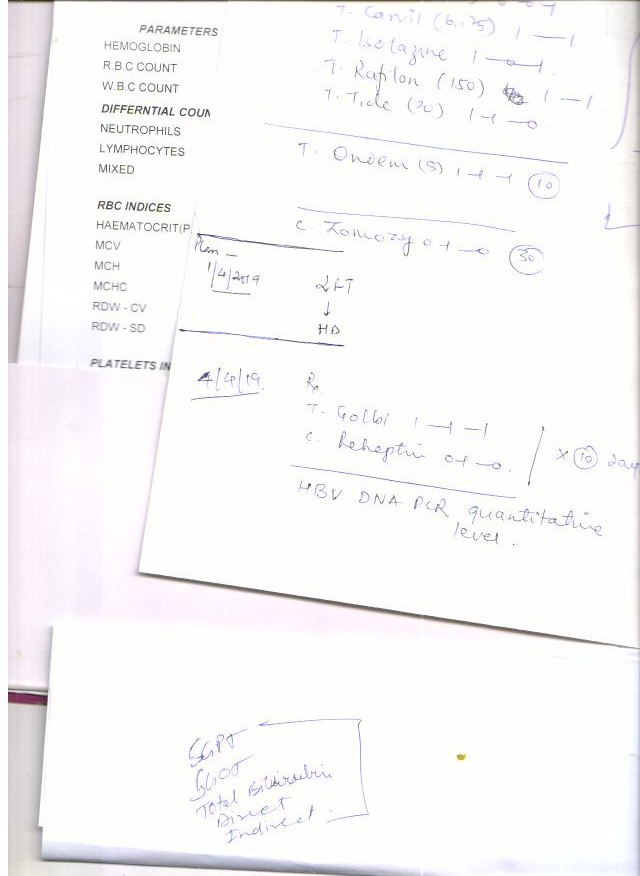 PARAMETERS
HEMOGLOBIN
R.B.C COUNT
W.B.C COUNT
DIFFERNTIAL COUN
NEUTROPHILS
LYMPHOCYTES
MIXED
RBC INDICES
HAEMATOCRIT(P
MCV
MCH
MCHC
RDW - CV
RDW - SD
PLATELETS IN
T. Carvil (6.125) 1 — 1
T. Isolazine 1 — 0 — 1
T. Rafilon (150) 1 — 1
T. Tide (20) 1 — 0
T. Ondem (5) 1 — 1 — 1 10
C. Zomozy 0 — 1 — 0 30
Plan -
1/4/2019 LFT
↓
HD
4/4/19 Rx
T. Golbi 1 — 1 — 1
C. Reheptin 0 — 1 — 0 × 10 days
HBV DNA PCR quantitative
level.
SGPT
SGOT
Total Bilirubin
Direct
Indirect.